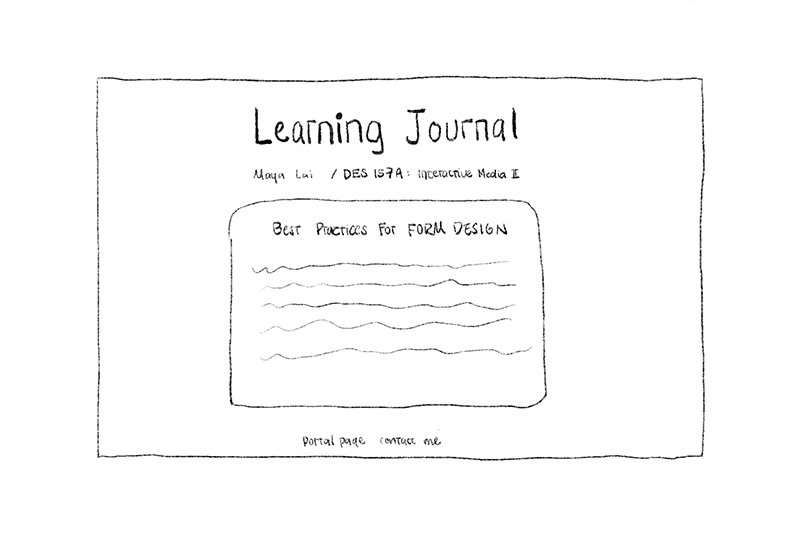 Learning Journal
Maya Lai / DES 157A: Interactive Media II
Best Practices For FORM DESIGN
portal page contact me